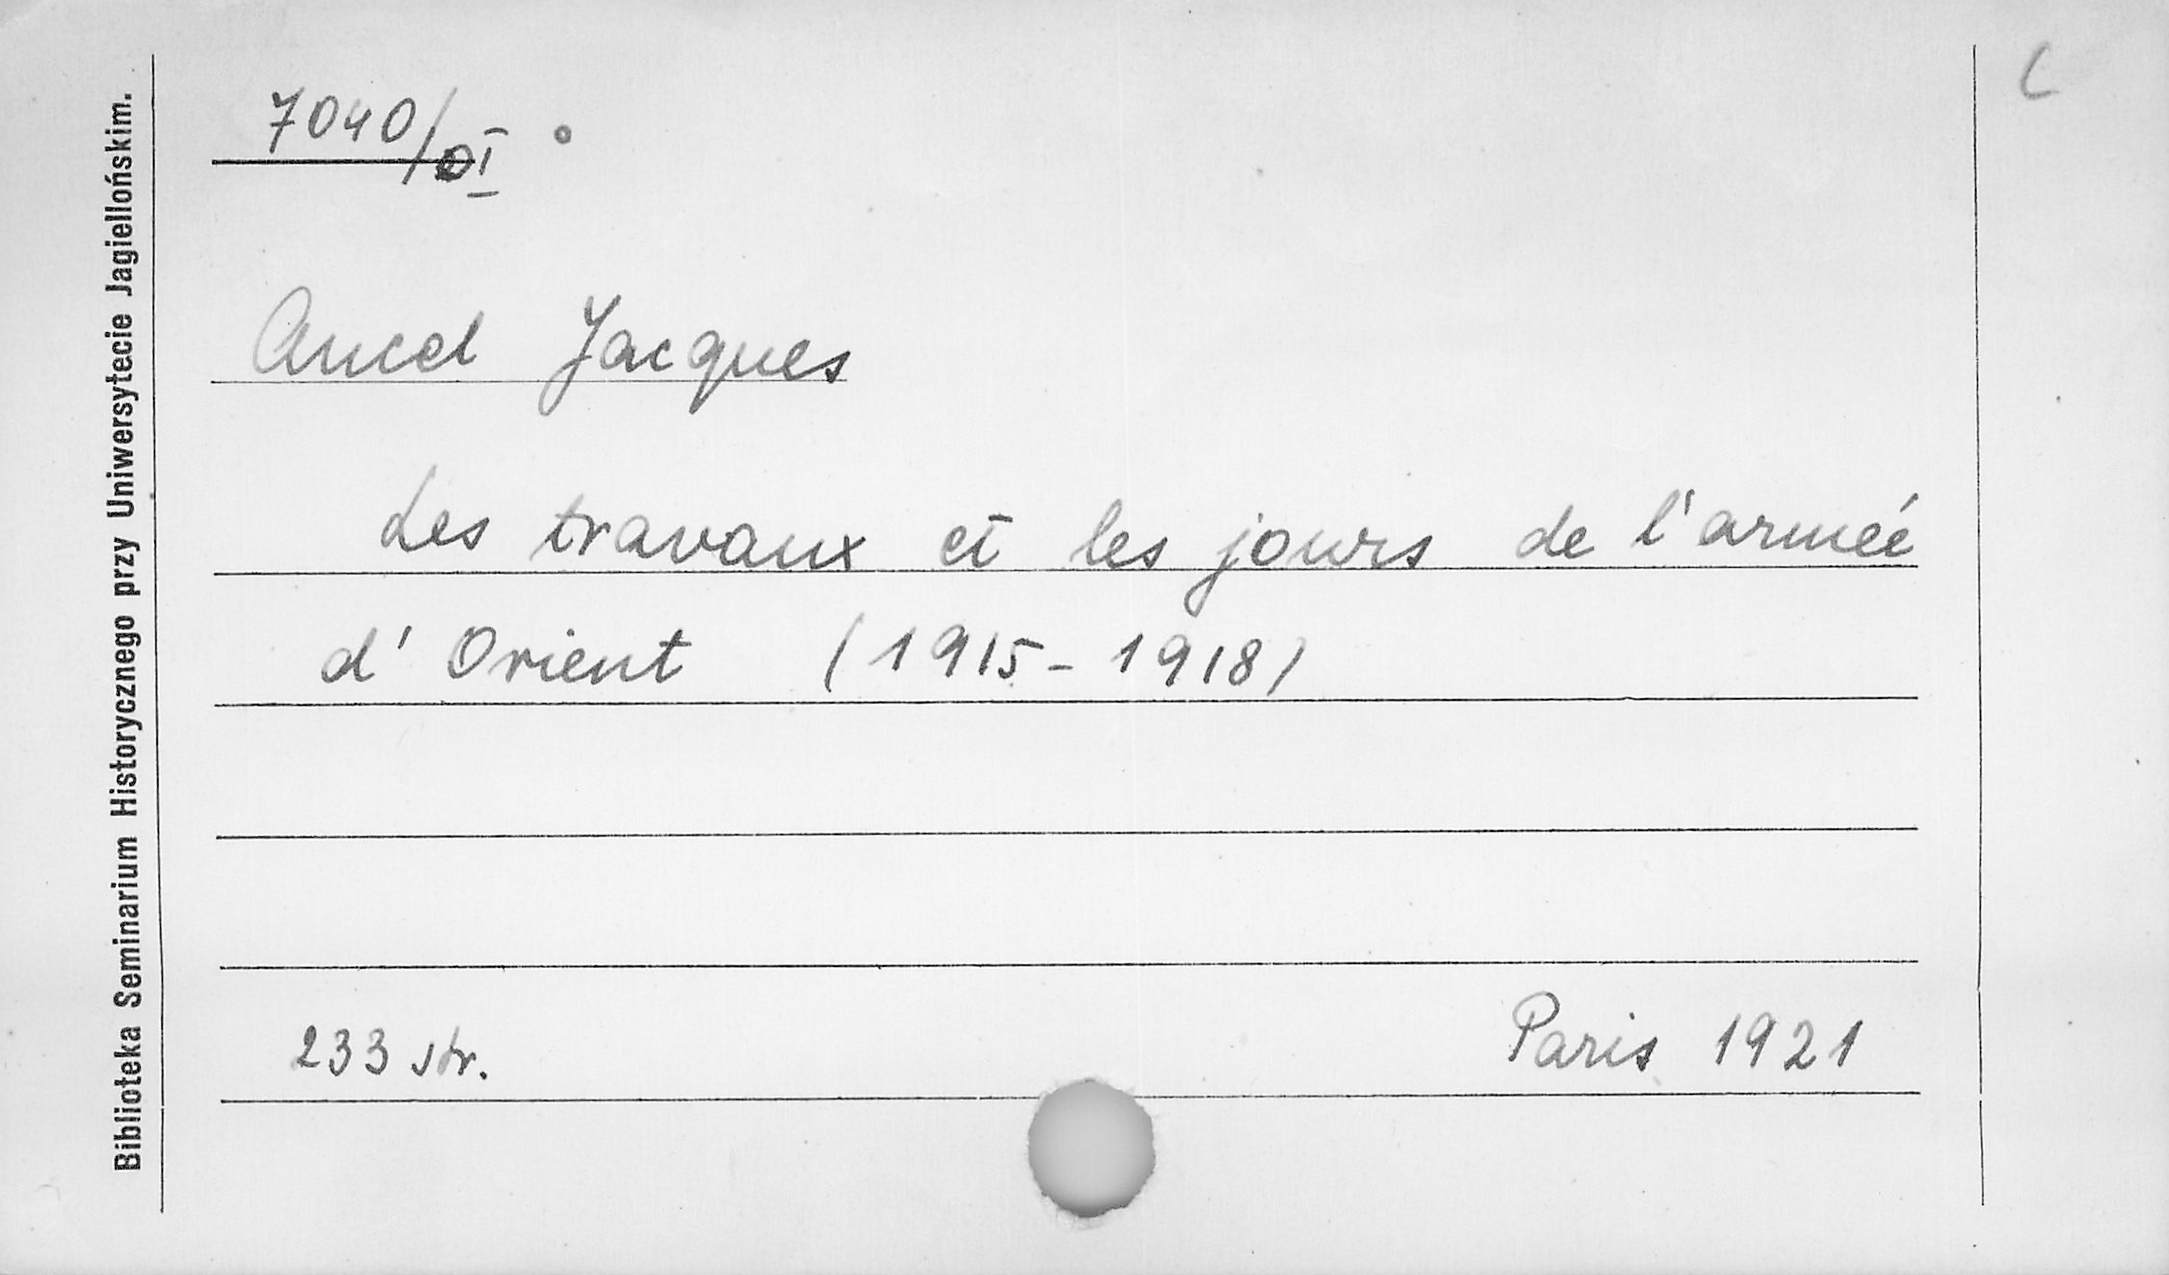 7040/DI °
Ancel Jacques
Les travaux et les jours de l'armeé
d'Orient (1915-1918)
233 str.
Paris 1921
Biblioteka Seminarium Historycznego przy Uniwersytecie Jagiellońskim.
C